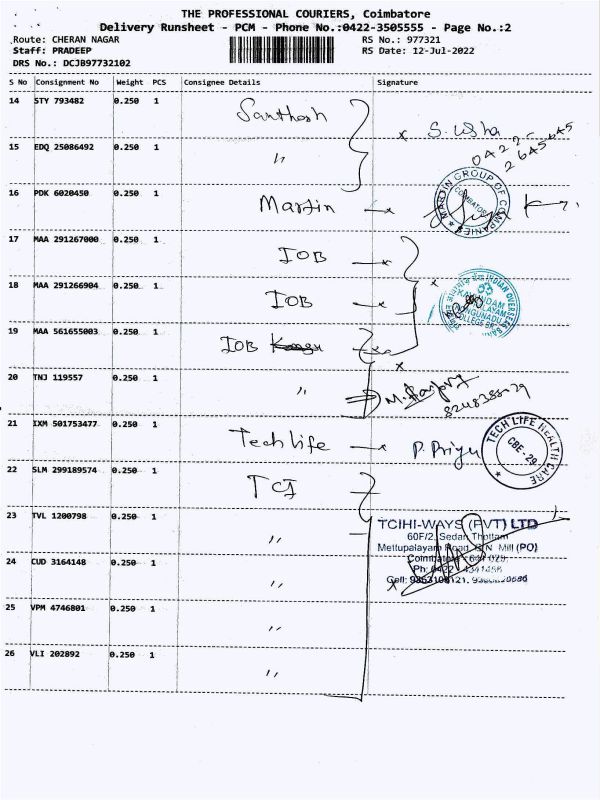 THE PROFESSIONAL COURIERS, Coimbatore
Delivery Runsheet - PCM - Phone No.:0422-3505555 - Page No.:2
Route: CHERAN NAGAR RS No.: 977321
Staff: PRADEEP RS Date: 12-Jul-2022
DRS No.: DCJB97732102
S No Consignment No Weight PCS Consignee Details Signature
14 STY 793482 0.250 1 Santhosh S. Usha
0422-
2645645
15 EDQ 25086492 0.250 1 "
16 PDK 6020450 0.250 1 Martin
MARTIN GROUP OF COMPANIES
COIMBATORE
17 MAA 291267000 0.250 1 IOB
18 MAA 291266904 0.250 1 IOB
INDIAN OVERSEAS
KAVUNDAM
19 MAA 561655003 0.250 1 IOB
20 TNJ 119557 0.250 1 "
21 IXM 501753477 0.250 1 Tech life P. Priya
TECH LIFE HEALTH CARE
CBE-29
22 SLM 299189574 0.250 1 TCI
23 TVL 1200798 0.250 1 "
TCIHI-WAYS (PVT) LTD
60F/2, Sedan Thottam
Mettupalayam Road, Mill (PO)
24 CUD 3164148 0.250 1 "
25 VPM 4746801 0.250 1 "
26 VLI 202892 0.250 1 "